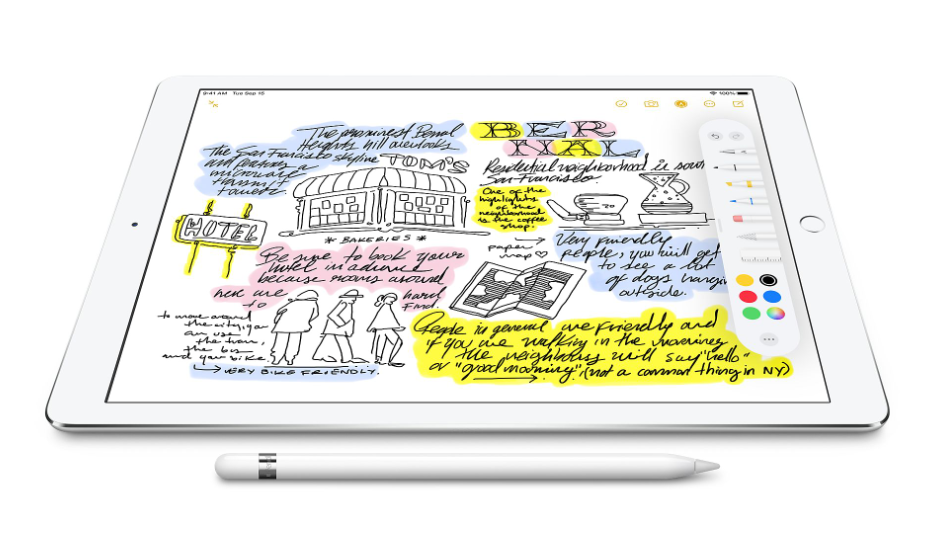 9:41 AM Tue Sep 10
100%
The prominent Bernal
Heights hill overlooks
The San Francisco skyline
and features a
microwave
transmit
tower.
TOM'S
HOTEL
* BAKERIES *
Be sure to book your
hotel in advance
because rooms around
here are
to
hard
find.
to move around
the city, you
can use
the tram,
the bus
and your bike.
VERY BIKE FRIENDLY.
BER
NAL
Residential neighborhood is sou
San Francisco.
One of the
highlights
of the
neighborhood
is the coffee
shop!
paper
map
Very friendly
people, you will get
to see a lot
of dogs hangin
outside.
People in general are friendly and
if you are walking in the morning
the neighbors will say "hello"
or "good morning". (not a common thing in NY)